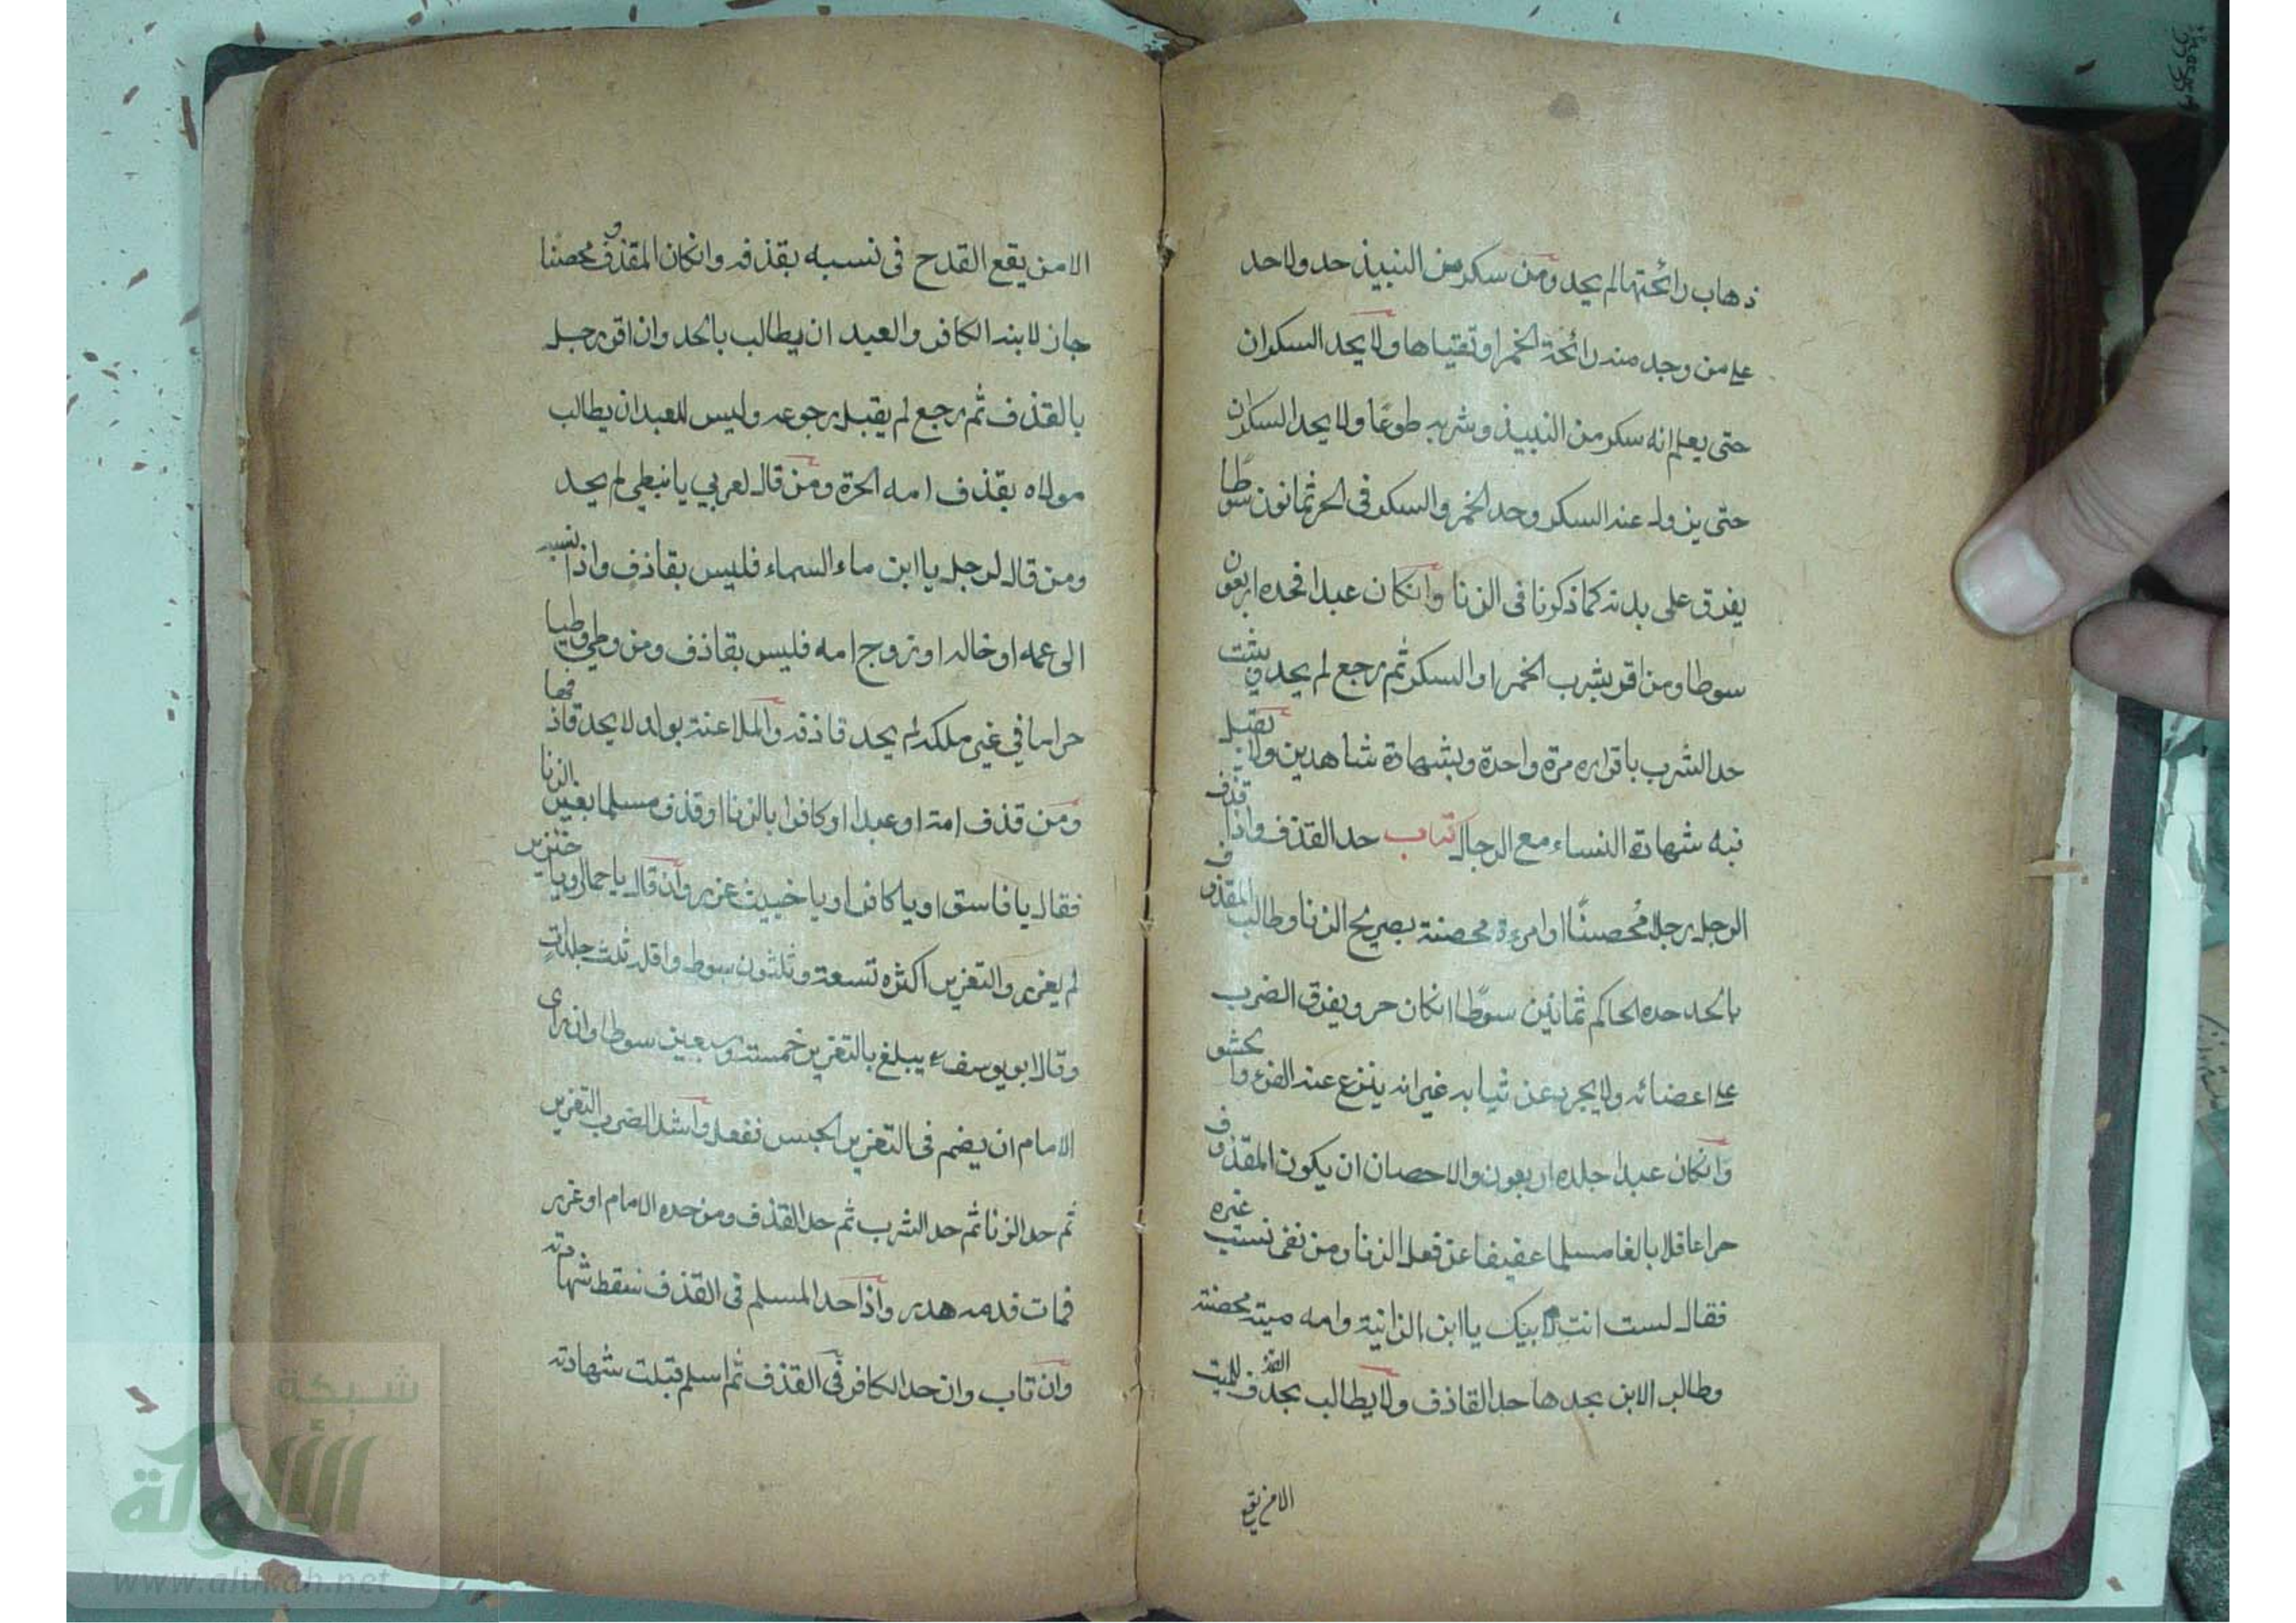 ذهاب رائحتها لم يحد ومن سكر من النبيذ حد ولا حد
على من وجد منه رائحة الخمر او تقياها ولا يحد السكران
حتى يعلم انه سكر من النبيذ وشربه طوعًا ولا يحد السكران
حتى يزول عنه السكر وحد الخمر والسكر فى الحر ثمانون سوطًا
يفرق على بدنه كما ذكرنا فى الزنا وانكان عبدا فحده اربعون
سوطا ومن اقر بشرب الخمر او السكر ثم رجع لم يحد ويثبت
حد الشرب باقراره مرة واحدة وبشهادة شاهدين ولا يقبل
فيه شهادة النساء مع الرجال كتاب حد القذف واذا قذف
الرجل رجلا مُحصنًا او امرءة محصنة بصريح الزنا وطالب المقذوف
بالحد حده الحاكم ثمانين سوطًا انكان حر ويفرق الضرب
على اعضائه ولا يجرد عن ثيابه غير انه ينزع عنه الفرو والحشو
وانكان عبدا جلده اربعون والاحصان ان يكون المقذوف
حرا عاقلا بالغا مسلما عفيفا عن فعل الزنا ومن نفى نسب غيره
فقال لست انت لابيك يا ابن الزانية وامه ميته محصنة
وطالب الابن بحدها حد القاذف ولا يطالب بحد القذف للميت
الا من يقع
الا من يقع القدح فى نسبه بقذفه وانكان المقذوف محصنًا
جاز لابنه الكافر والعبد ان يطالب بالحد وان اقر رجل
بالقذف ثم رجع لم يقبل رجوعه وليس للعبد ان يطالب
مولاه بقذف امه الحرة ومن قال لعربي يا نبطي لم يحد
ومن قال لرجل يا ابن ماء السماء فليس بقاذف واذا نسبه
الى عمه او خاله او زوج امه فليس بقاذف ومن وطي وطيا
حراما في غير ملكه لم يحد قاذفه والملاعنة بولد لا يحد قاذفها
ومن قذف امة او عبدا او كافرا بالزنا او قذف مسلما بغير الزنا
فقال يا فاسق او يا كافر او يا خبيث عزر وان قال يا حمار ويا خنزير
لم يعزر والتعزير اكثره تسعة وثلثون سوط واقله ثلث جلدات
وقال ابو يوسف يبلغ بالتعزير خمسة وسبعين سوطا وان راى
الامام ان يضم فى التعزير الحبس نفعل واشد الضرب التعزير
ثم حد الزنا ثم حد الشرب ثم حد القذف ومن حده الامام او عزر
فمات فدمه هدر واذا حد المسلم فى القذف سقط شهادته
وان تاب وان حد الكافر فى القذف ثم اسلم قبلت شهادته
شبكة
الألوكة
www.alukah.net